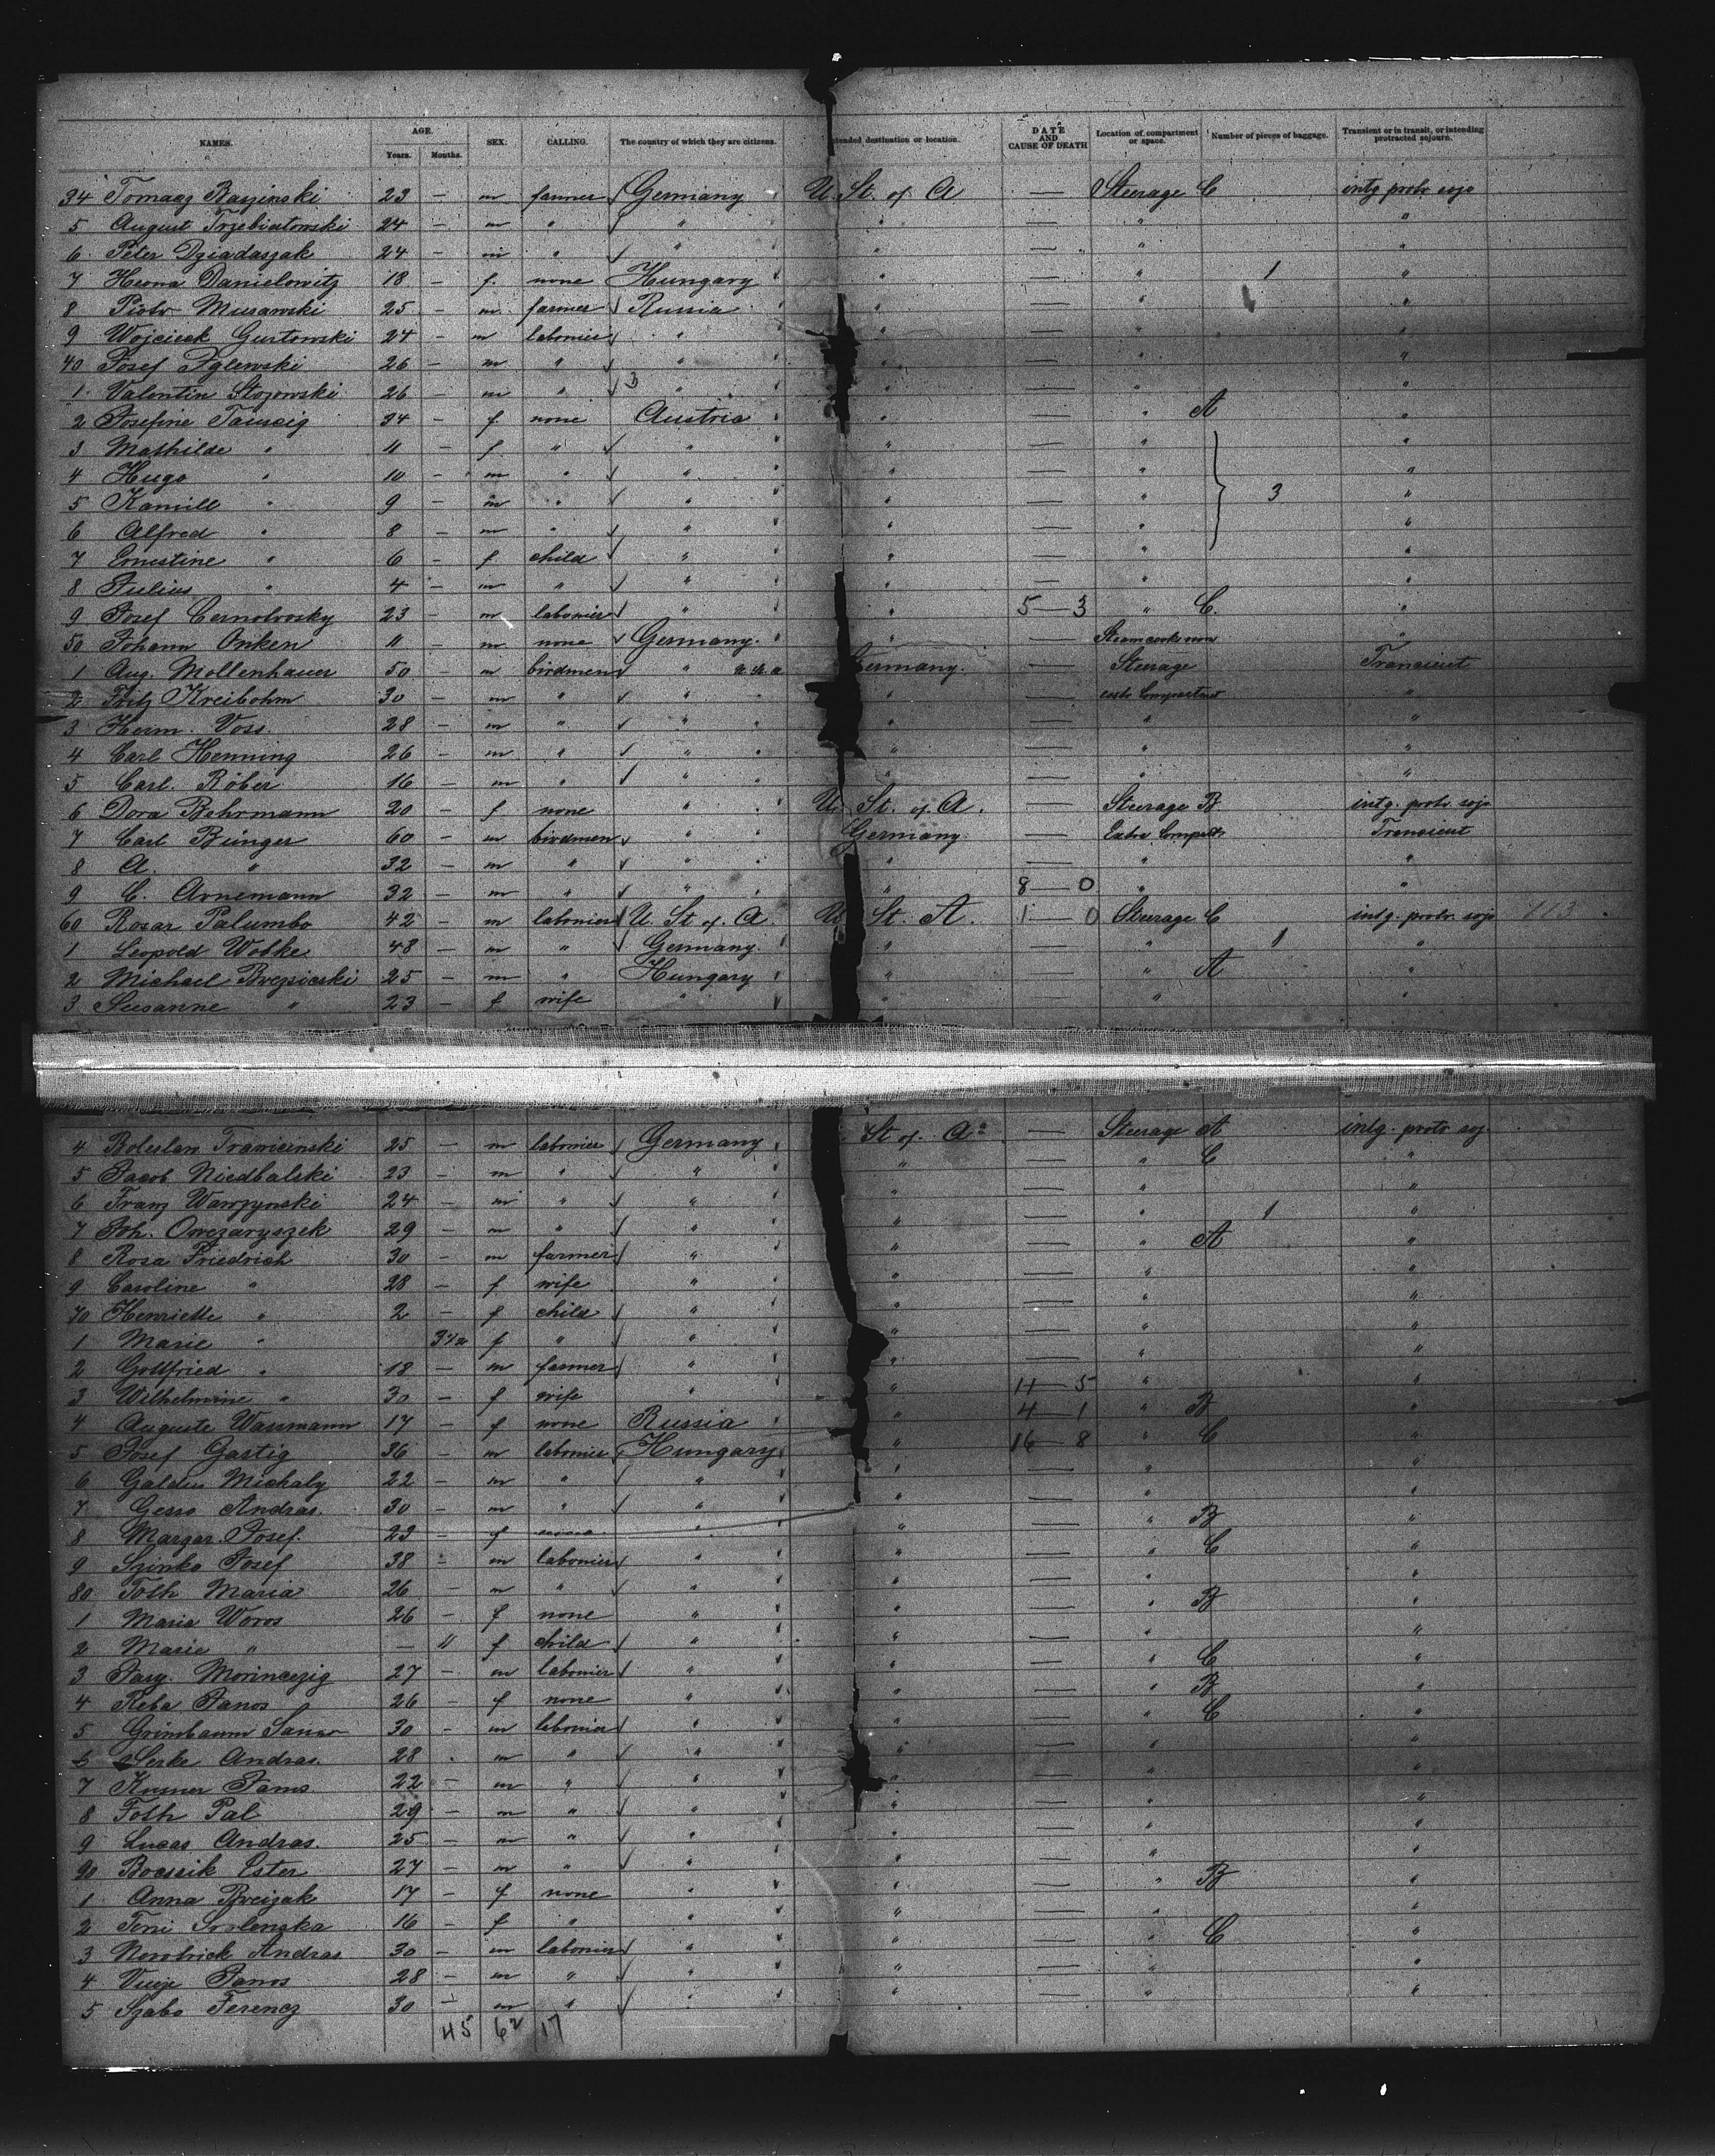 NAMES. AGE. Years. Months. SEX. CALLING. The country of which they are citizens. Intended destination or location. DATE AND CAUSE OF DEATH Location of compartment or space. Number of pieces of baggage. Transient or in transit, or intending protracted sojourn.
34 Tomasz Baszinski 23 — m farmer Germany U. St. of A — Steerage C intg protr sojo
5 August Trzebiatowski 24 — m " " " — " "
6 Peter Dziadaszak 24 — m " " " — " "
7 Danielowitz 18 — f none Hungary " — " 1 "
8 Piotr Murawski 25 — m farmer Russia " — " "
9 Wojcieck Gurtowski 24 — m labourer " " — " "
40 Josef Zglewski 26 — m " " " — " "
1 Valentin Stozowski 26 — m " 3 " " — " "
2 Josefine Taussig 34 — f none Austria " — " A "
3 Mathilde " 11 — f " " " — " "
4 Hugo " 10 — m " " " — " "
5 Kamill " 9 — m " " " — " 3 "
6 Alfred " 8 — m " " " — " "
7 Ernestine " 6 — f child " " — " "
8 Julius " 4 — m " " " — " "
9 Josef Cernolvosky 23 — m labourer " " 5—3 " C. "
50 Johann Onken 11 — m none Germany. " — "
1 Aug. Mollenhauer 50 — m birdmen " Germany. — Steerage Transient
2 Fritz Kreibohm 30 — m " " " — extr Compartm "
3 Herm. Voss. 28 — m " " " — " "
4 Carl Henning 26 — m " " " — " "
5 Carl. Röber 16 — m " " " — " "
6 Dora Behrmann 20 — f none " U. St. of A. — Steerage B intg. protr. sojo
7 Carl Bünger 60 — m birdmen " Germany — Extra Compartm Transient
8 A. " 32 — m " " " — " "
9 C. Arnemann 32 — m " " " 8—0 " "
60 Rosar Palumbo 42 — m labourer U. St. of. A U. St. A. 1—0 Steerage C intg. protr. sojo 113
1 Leopold Wotke 48 — m " Germany. " — " 1 "
2 Michael Brezsicski 25 — m " Hungary " — " A "
3 Susanne " 23 — f wife " " " "
4 Boleslaw Trawicinski 25 — m labourer Germany St of. A — Steerage A intg. protr soj.
5 Jacob Niedbalski 23 — m " " " — " C "
6 Franz Warzynski 24 — m " " " — " "
7 Joh. Owczaryszek 29 — m " " " — " 1 "
8 Rosa Friedrich 30 — m farmer " " — " A "
9 Caroline " 28 — f wife " " — " "
70 Henriette " 2 — f child " " — " "
1 Marie " f " " " — " "
2 Gottfried " 18 — m farmer " " — " "
3 Wilhelmine " 30 — f wife " " 11—5 " "
4 Auguste Wassmann 17 — f none Russia " 4—1 " B "
5 Josef Gastig 36 — m labourer Hungary " 16—8 " C "
6 Galdu Michaly 22 — m " " " — " "
7 Gesso Andras. 30 — m " " " — " "
8 Margar. Josef. 23 — f " " — " B "
9 Szinko Josef 38 — m labourer " " — " C "
80 Toth Maria 26 — m " " " — " "
1 Maria Woros 26 — f none " " — " B "
2 Marie " — 11 f child " " — " "
3 27 — m labourer " " — " C "
4 Reba Janos 26 — f none " " — " B "
5 Grünbaum 30 — m labourer " " — " C "
6 Serke Andras. 28 m " " " — " "
7 Kusner Janos 22 — m " " " — " "
8 Toth Pal 29 — m " " " — " "
9 Lucas Andras. 25 — m " " " — " "
90 Bocssik Ester 27 — m " " " — " "
1 Anna Breizak 17 — f none " " — " B "
2 Teni Srolenska 16 — f " " " — " "
3 Andras 30 — m labourer " " — " C "
4 Janos 28 — m " " " — " "
5 Szabo Ferencz 30 — m " " " — " "
45 62 17